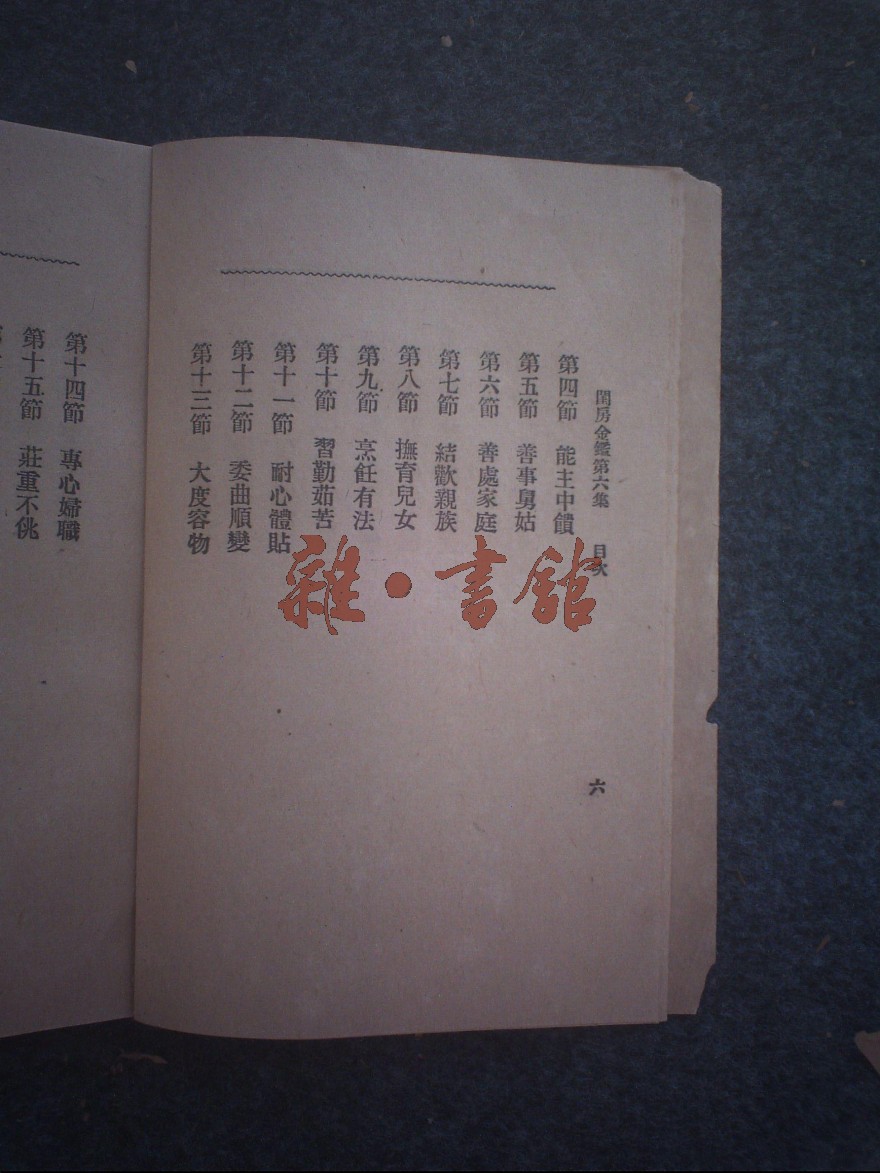 閨房金鑑第六集　目次
六
第四節　能主中饋
第五節　善事舅姑
第六節　善處家庭
第七節　結歡親族
第八節　撫育兒女
第九節　烹飪有法
第十節　習勤茹苦
第十一節　耐心體貼
第十二節　委曲順變
第十三節　大度容物
第十四節　專心婦職
第十五節　莊重不佻
雜·書館